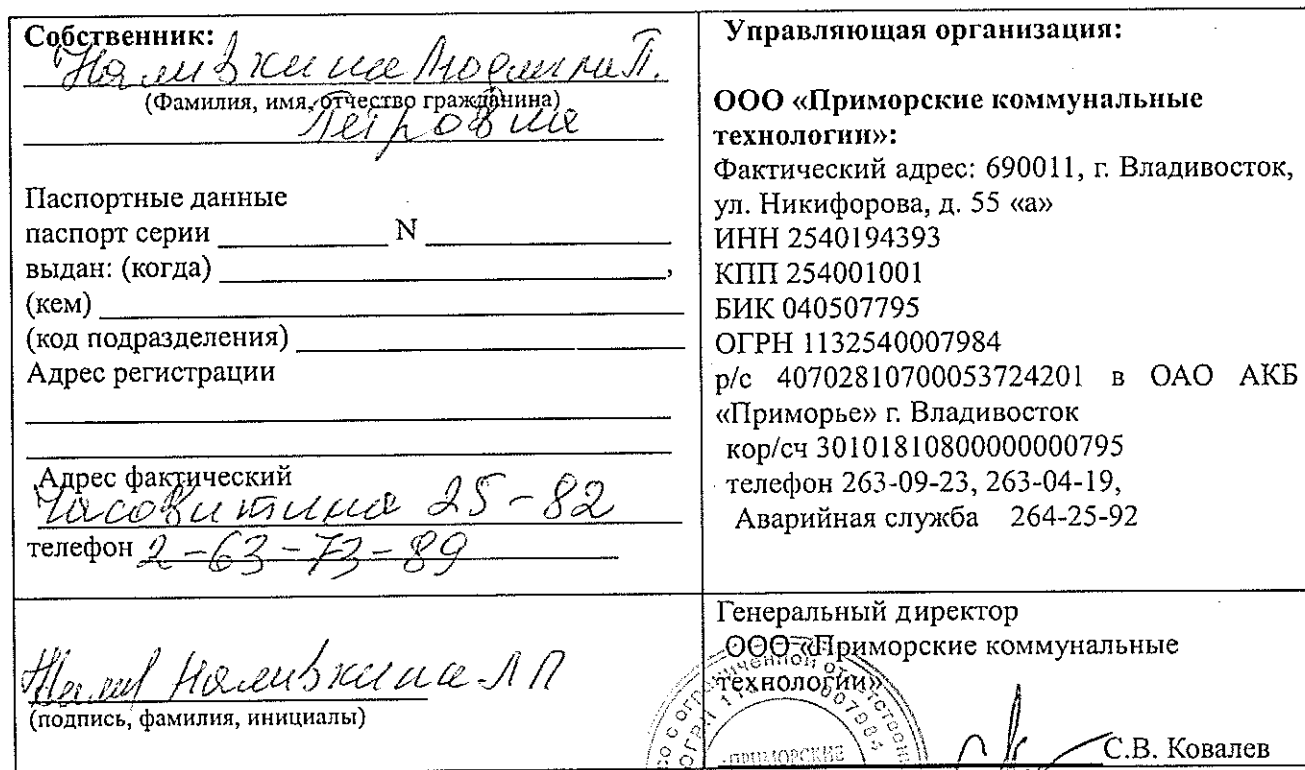 Собственник:
Наливкина Людмила П.
(Фамилия, имя, отчество гражданина)
Петровна
Паспортные данные
паспорт серии ____________ N ____________
выдан: (когда) ____________,
(кем) ____________
(код подразделения) ____________
Адрес регистрации
Адрес фактический
Часовитина 25-82
телефон 2-63-73-89
Управляющая организация:
ООО «Приморские коммунальные
технологии»:
Фактический адрес: 690011, г. Владивосток,
ул. Никифорова, д. 55 «а»
ИНН 2540194393
КПП 254001001
БИК 040507795
ОГРН 1132540007984
р/с 40702810700053724201 в ОАО АКБ
«Приморье» г. Владивосток
кор/сч 30101810800000000795
телефон 263-09-23, 263-04-19,
Аварийная служба 264-25-92
Налив Наливкина Л П
(подпись, фамилия, инициалы)
Генеральный директор
ООО «Приморские коммунальные
технологии»
С.В. Ковалев
ПРИМОРСКИЕ